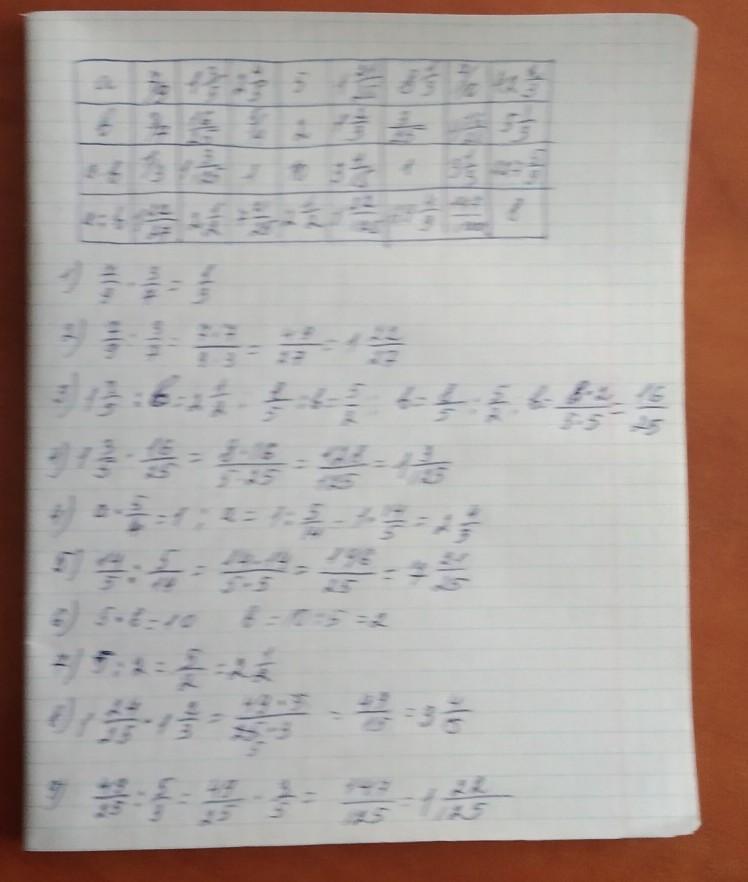 a 7/9 1 3/5 2 4/5 5 1 24/25
b 3/7 16/25 5/14 2 1 2/3 5 1/3
a·b 1/3 1 3/125 1 10 3 4/15 1
a:b 1 22/27 2 1/2 7 21/25 2 1/2 1 22/125 8
1) 7/9 · 3/7 = 1/3
2) 7/9 : 3/7 = 7·7/9·3 = 49/27 = 1 22/27
3) 1 3/5 : b = 2 1/2 8/5 : b = 5/2 b = 8/5 : 5/2 b = 8·2/5·5 = 16/25
4) 1 3/5 · 16/25 = 8·16/5·25 = 128/125 = 1 3/125
a · 5/14 = 1; a = 1 : 5/14 = 1 · 14/5 = 2 4/5
5) 14/5 : 5/14 = 14·14/5·5 = 196/25 = 7 21/25
6) 5·b=10 b=10:5=2
7) 5:2 = 5/2 = 2 1/2
8) 1 24/25 · 1 2/3 = 49·5/25·3 = 49/15 = 3 4/5
9) 49/25 : 5/3 = 49/25 · 3/5 = 147/125 = 1 22/125